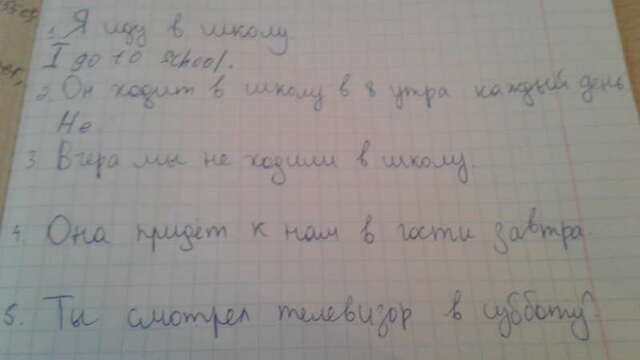 1. Я иду в школу
I go to school.
2. Он ходит в школу в 8 утра каждый день
He
3. Вчера мы не ходили в школу.
4. Она придет к нам в гости завтра
5. Ты смотрел телевизор в субботу?